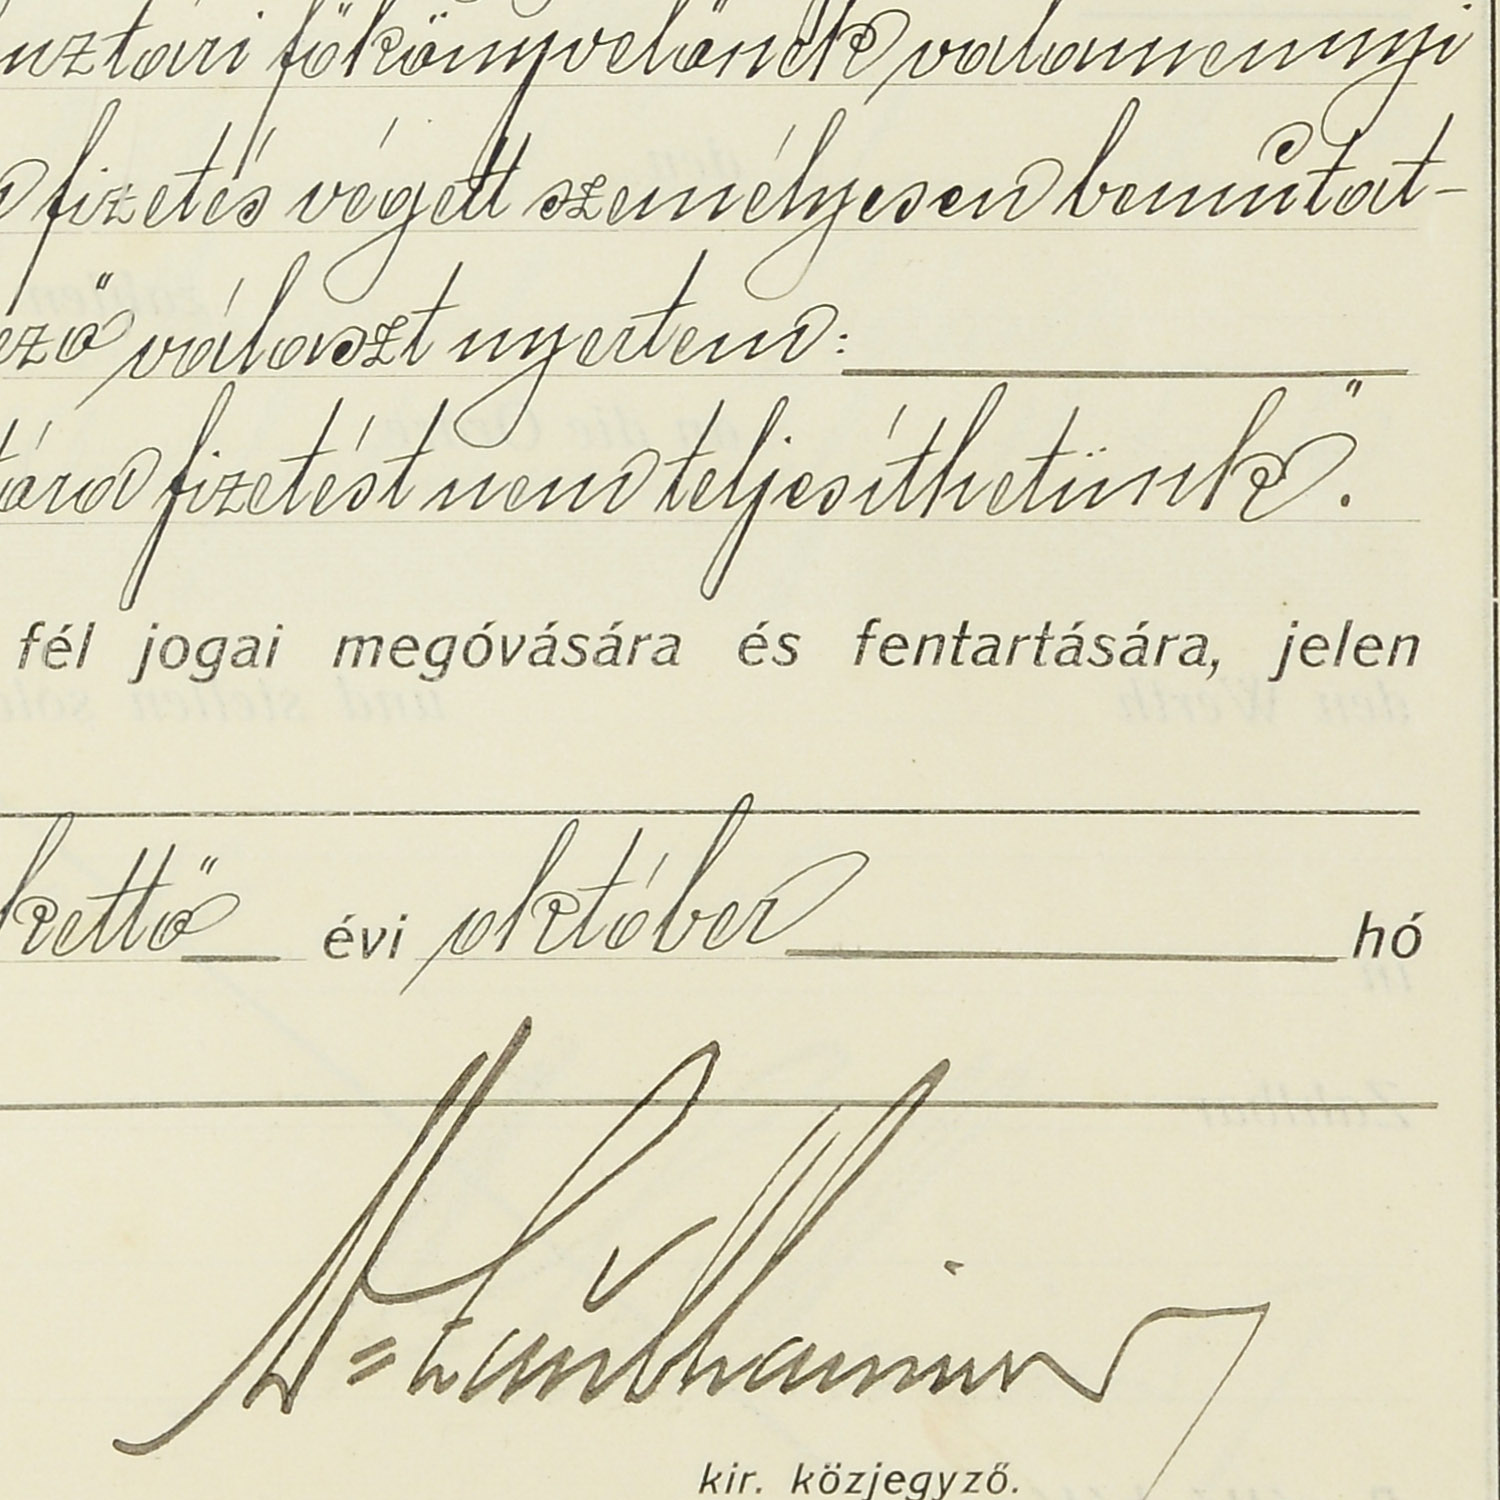 főkönyvelőnek valamennyi
fizetés végett személyesen bemutat-
ező választ nyertem:
fizetést nem teljesíthetünk".
fél jogai megóvására és fentartására, jelen
kettő évi október hó
kir. közjegyző.